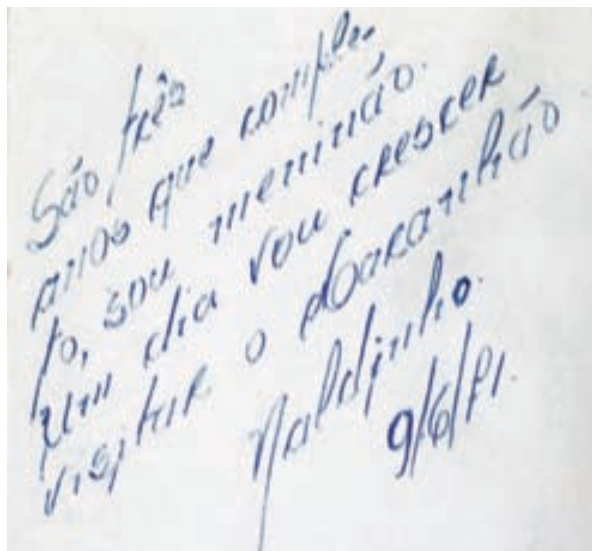 São três
anos que comple-
to, sou meninão.
Um dia vou crescer
visitar o Maranhão
Naldinho.
9/6/81.